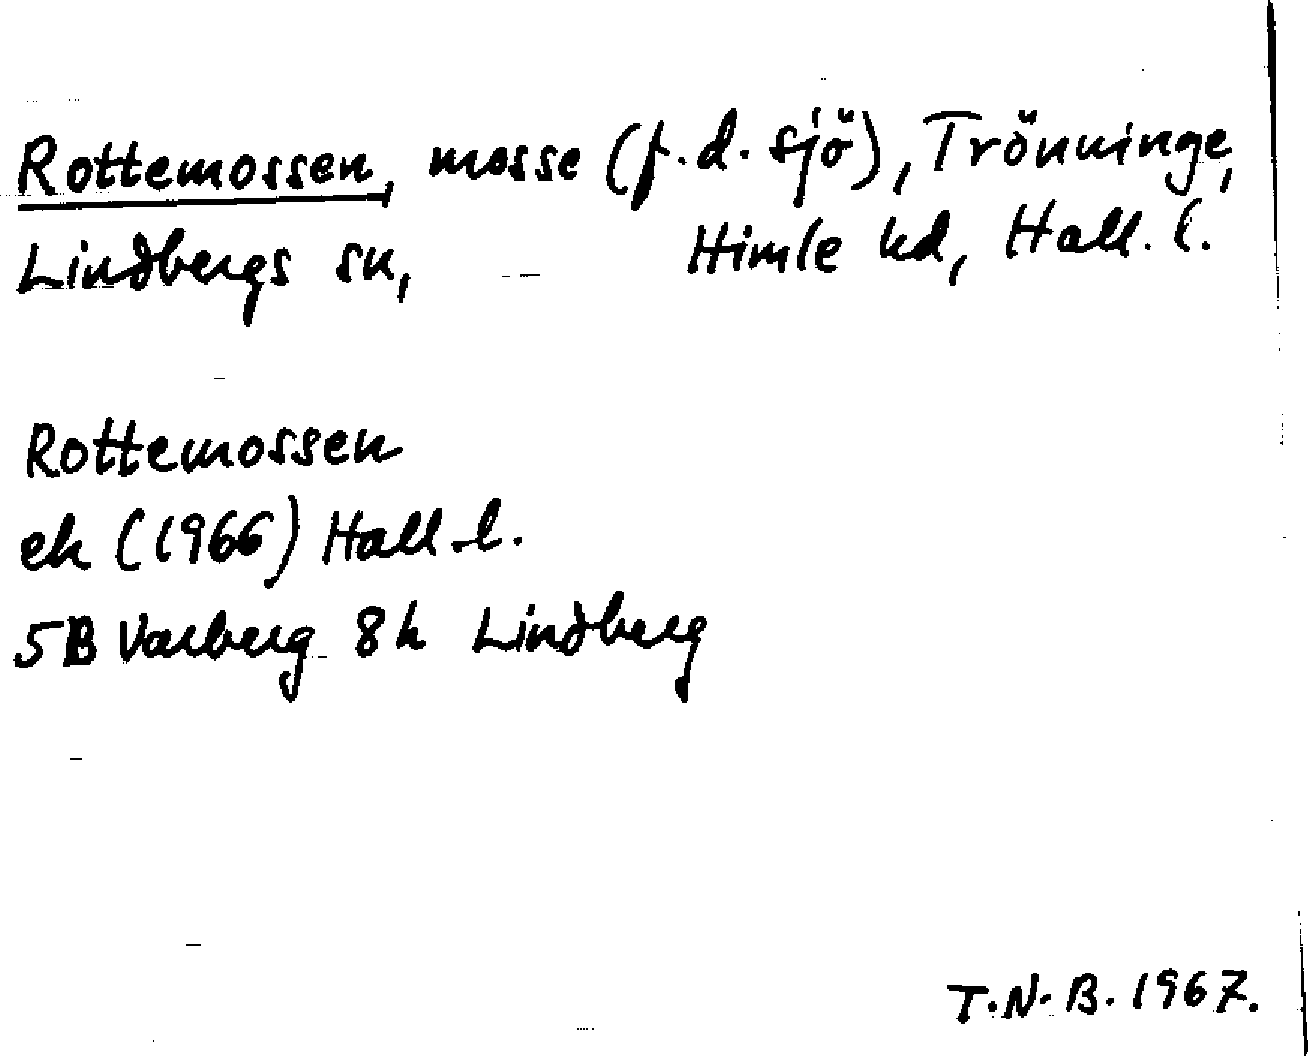 Rottemossen, mosse (f.d. sjö), Trönninge,
Lindbergs sn, Himle hd, Hall. l.
Rottemossen
ek (1966) Hall. l.
5B Varberg 8h Lindberg
T.N.B. 1967.